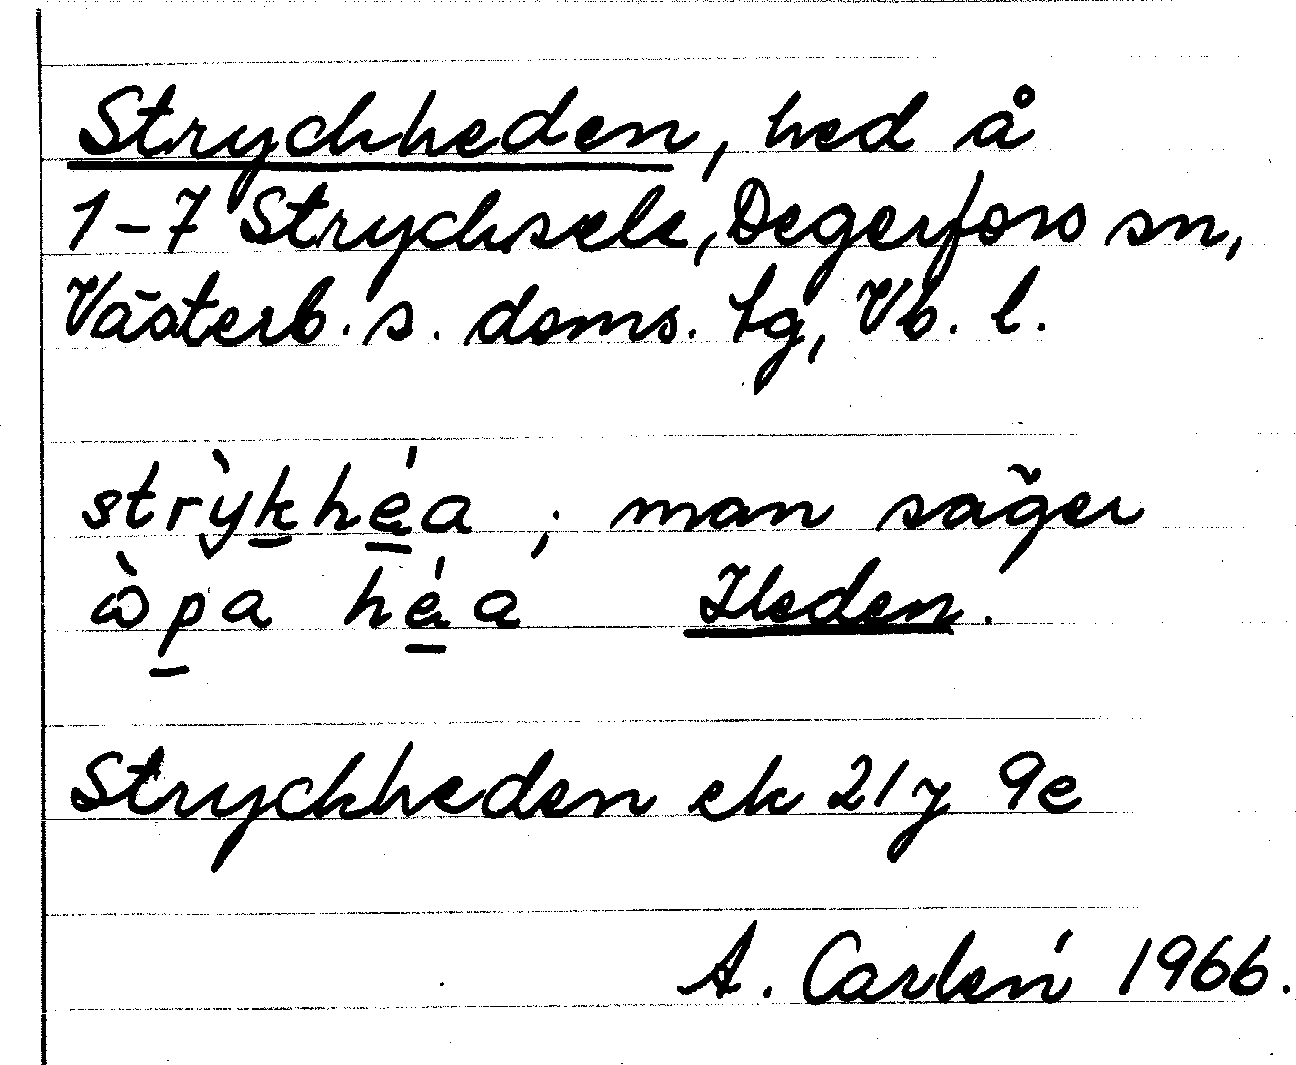 Stryckheden, hed å
1-7 Strycksele, Degerfors sn,
Västerb. s. doms. tg, Vb. l.
strỳkhéa ; man säger
òpa héa Heden.
Stryckheden ek 21 y 9e
A. Carlén 1966.